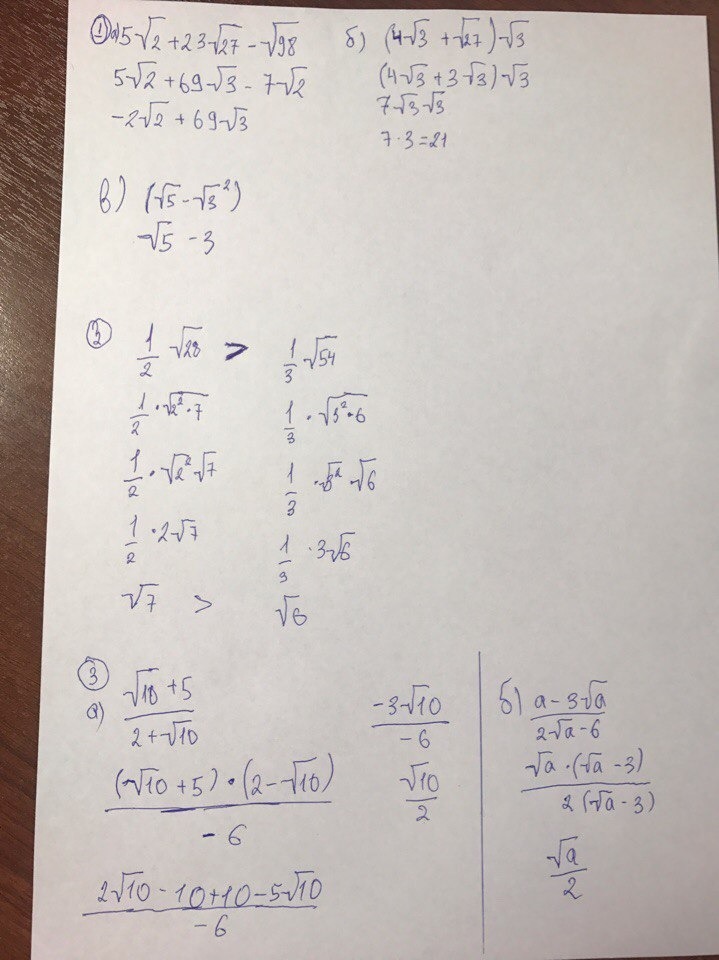 ① а) 5√2 + 23√27 - √98
5√2 + 69√3 - 7√2
-2√2 + 69√3
б) (4√3 + √27)√3
(4√3 + 3√3)√3
7√3√3
7·3=21
в) (√5 - √3²)
√5 - 3
② 1/2 √28 > 1/3 √54
1/2 · √2²·7 1/3 · √3²·6
1/2 · √2² √7 1/3 · √3² · √6
1/2 · 2√7 1/3 · 3√6
√7 > √6
③
а) (√10 + 5)/(2 + √10)
((√10 + 5) · (2 - √10))/(-6)
(2√10 - 10 + 10 - 5√10)/(-6)
(-3√10)/(-6)
√10/2
б) (a - 3√a)/(2√a - 6)
(√a · (√a - 3))/(2(√a - 3))
√a/2